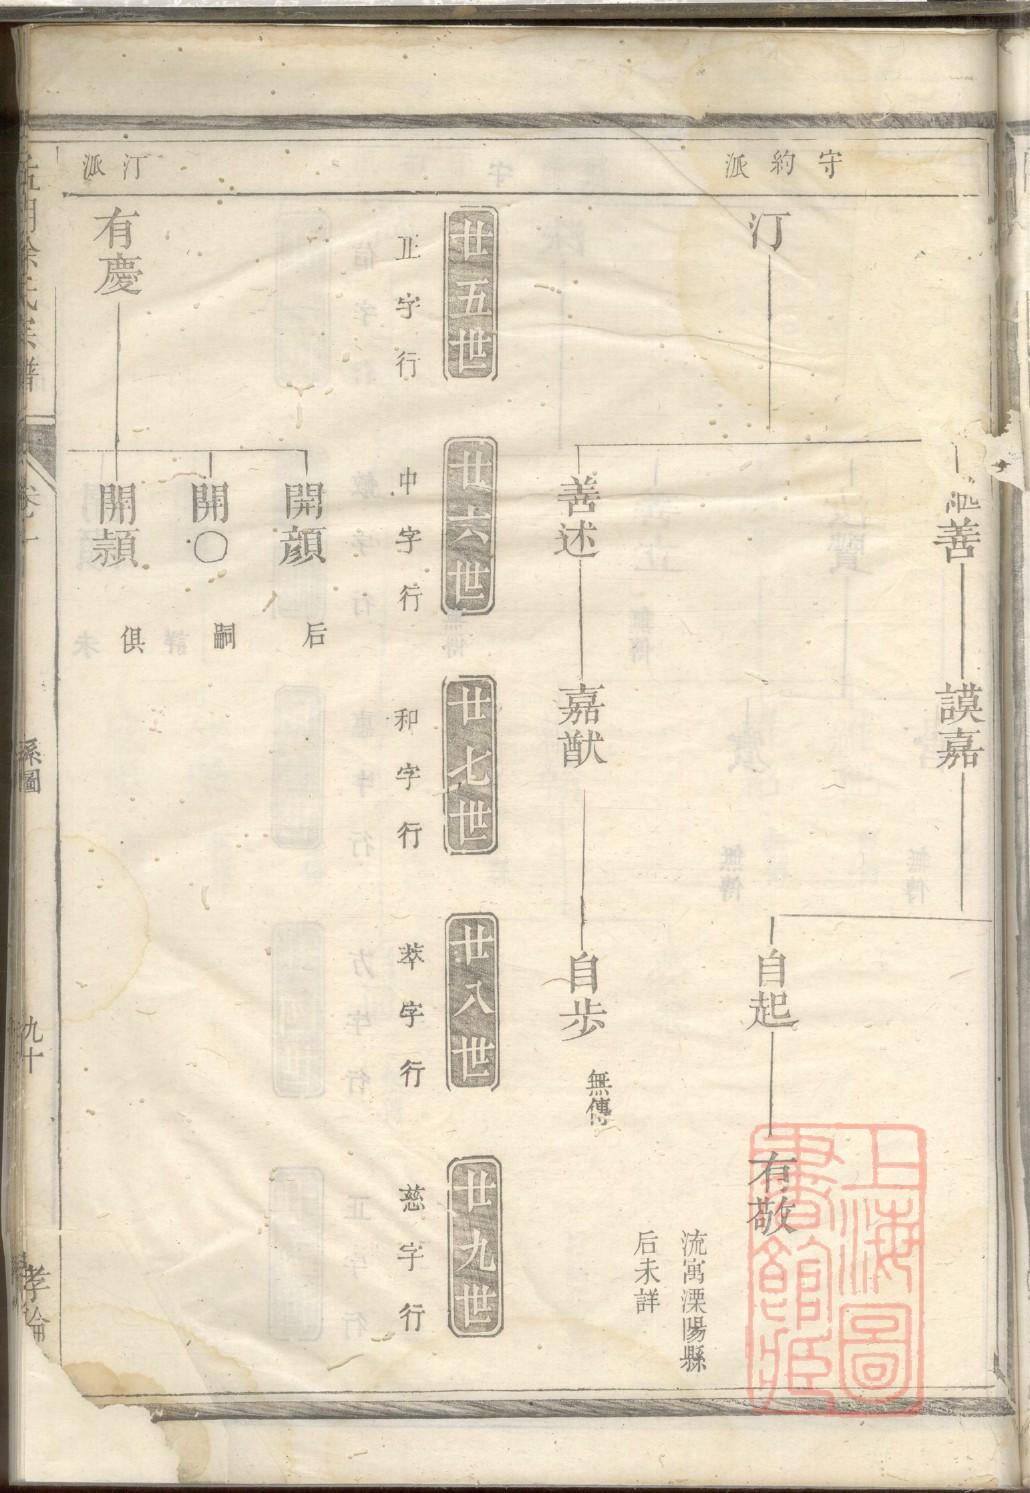 守約派
汀
繼善
謨嘉
自起
有敬
流寓溧陽縣
后未詳
善述
嘉猷
自歩
無傳
廿五世
廿六世
廿七世
廿八世
廿九世
正字行
中字行
和字行
萃字行
慈字行
汀派
有慶
開顔
后
開〇
嗣
開頴
俱
徐氏宗譜
卷一
系圖
九十
孝倫
上海圖書館藏